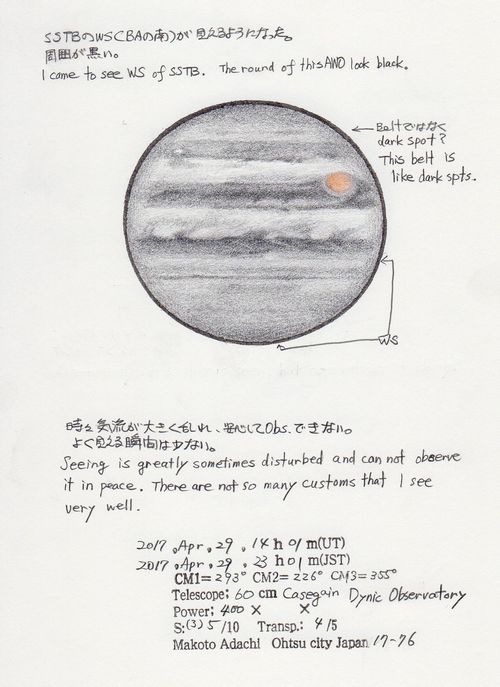 SSTBのWS(BAの南)が見えるようになった。
周囲が黒い。
I came to see WS of SSTB. The round of this AWO look black.
Beltではなく
dark spot?
This belt is
like dark spts.
WS
時々気流が大きくみだれ、安心してObs.できない。
よく見える瞬間は少ない。
Seeing is greatly sometimes disturbed and can not observe
it in peace. There are not so many customs that I see
very well.
2017.Apr.29. 14h01m(UT)
2017.Apr.29. 23h01m(JST)
CM1=293° CM2=226° CM3=355°
Telescope; 60cm Casegain Dynic Observatory
Power; 400× ×
S:(3)5/10 Transp.: 4/5
Makoto Adachi Ohtsu city Japan 17-76